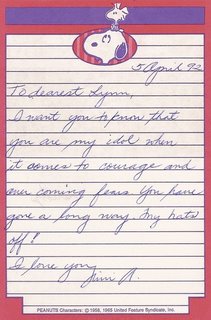 5 April 92
To dearest Lynn,
I want you to know that
you are my idol when
it comes to courage and
over coming fears. You have
gone a long way my hats
off!
I love you,
Jim A.
PEANUTS Characters: © 1958, 1965 United Feature Syndicate, Inc.